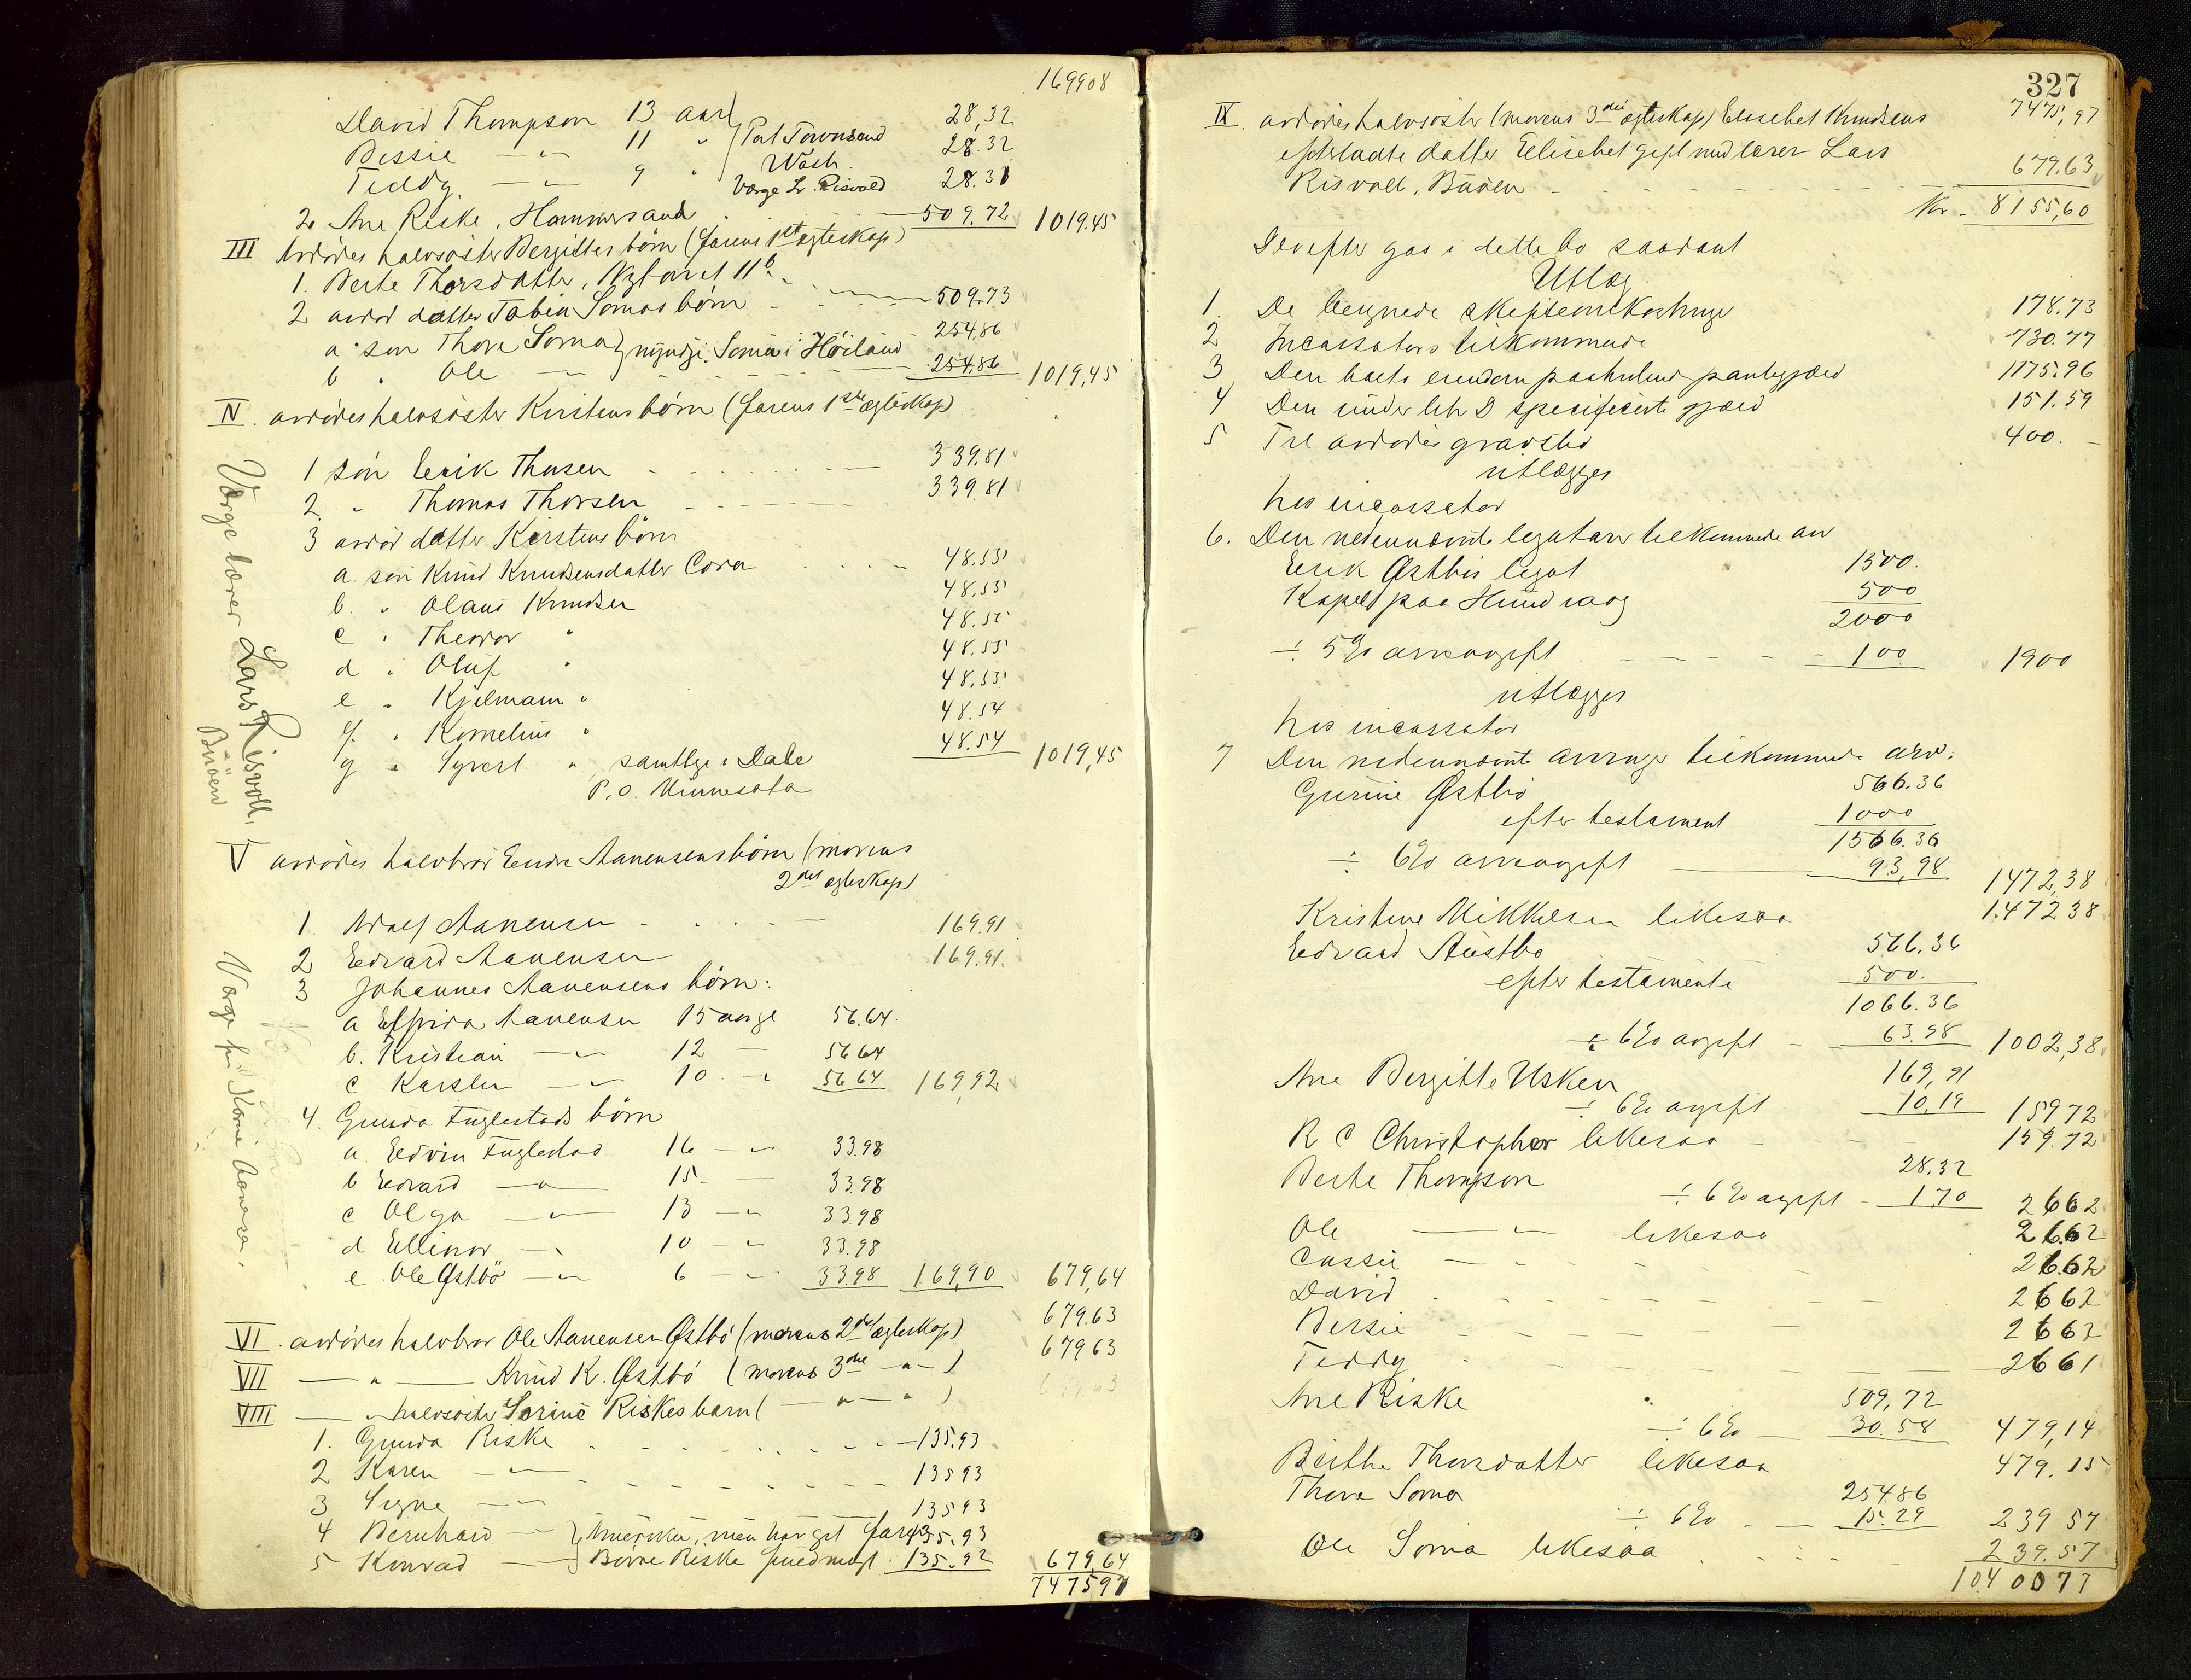 169908
David Thompson 13 aar 28,32
Bessie —"— 11 " Port Townsend 28.32
Teddy —"— 9 " Wash. 28.31
Værge Lr. Risvold
2 Ane Riske, Hammersand 509.72 1019.45
III Avdødes halvsøster Bergittes børn (farens 1ste egteskap)
1. Berte Thorsdatter, Nytorvet 11 b. 509.73
2 avdød datter Tobia Somas børn
a. søn Thore Soma } myndige, Soma i Høiland 254,86
b " Ole —"— 254,86 1019,45
IV. avdødes halvsøster Kirstens børn (farens 1ste egteskap)
1 søn Eerik Thorsen 339,81
2 " Thomas Thorsen 339.81
3 avdød datter Kirstens børn
a. søn Knud Knudsens datter Cora 48.55
b. " Olaus Knudsen 48.55
c " Theodor " 48.55
d " Oluf " 48.55
e " Kjelmann " 48.55
f. " Kornelius " 48.54
g " Syvert " samtlige i Dale 48.54 1019,45
P.O. Minnesota
Værge lærer Lars Risvoll,
Buøen
V avdødes halvbror Endre Aanensens børn (morens
2det egteskap)
1. Adolf Aanensen 169.91
2 Edvard Aanensen 169.91.
3 Johannes Aanensens børn:
a Elfrida Aanensen 15 aarige 56.64
b. Kristian —"— 12 — 56 64
c Karsten —"— 10 —" 56 64 169,92
4. Gunda Fuglestads børn
a. Edvin Fuglestad 16 —" 33.98
b Edvard —"— 15. — 33.98
c Olga —"— 13 —" 33.98
d Ellinor —" 10 —" 33.98
e Ole Østbø —" 6 —" 33.98 169,90 679,64
Værge fru Karne Aanensen.
VI. avdødes halvbror Ole Aanensen Østbø (morens 2det egteskap) 679.63
VII —"— Knud K. Østbø (morens 3die —"—) 679 63
VIII —"— halvsøster Serine Riskes barn (—"—"—)
1. Gunda Riske 135.93
2 Karen —"— 135 93
3 Signe —"— 135 93
4 Bernhard —" } Amerika, men har git faren 135,93
5 Konrad — Børre Riske fuldmagt 135.92 679,64
747597
327
IX. avdødes halvsøster (morens 3die egteskap) Elisebet Knudsens 7475,97
efterladte datter Elisebet gift med lærer Lars
Risvoll, Buøen 679.63
Kr. 8155,60
Derefter gaa i dette bo saadant
Utlæg
1. De beregnede skifteomkostninger 178.73
2 Incassators tilkommende 730.77
3 Den boets eiendom paahvilende pantegjæld 1175.96
4 Den under litr D specificerte gjæld 151.59
5 Til avdødes gravsted 400.—
utlægges
hos incassator
6. Den nedennævnte legatarer tilkommende arv
Erik Østbøs legat 1500.
Kapelet paa Hundvaag 500
2000
÷ 5% arveavgift 100 1900
utlægges
hos incassator
7 Den nedennævnte arvinger tilkommende arv:
Gurine Østbø 566.36
efter testament 1000
1566.36
÷ 6% arveavgift 93,98 1472,38
Kristine Mikkelsen likesaa 1.472 38
Edvard Austbø 566.36
efter testamente 500.
1066.36
÷ 6% avgift 63.98 1002,38
Ane Bergitte Usken 169,91
÷ 6% avgift 10,19 159 72
R C Christopher likesaa 159.72
Berte Thompson 28.32
÷ 6% avgift 1.70 26 62
Ole —"— likesaa 26.62
Cassie —"— 26.62
David 26 62
Bessie 26 62
Teddy 26 61
Ane Riske 509,72
÷ 6% 30.58 479,14
Berthe Thorsdatter likesaa 479.15
Thore Soma 254.86
÷ 6% 15.29 239 57
Ole Soma likesaa 239.57
10400 77